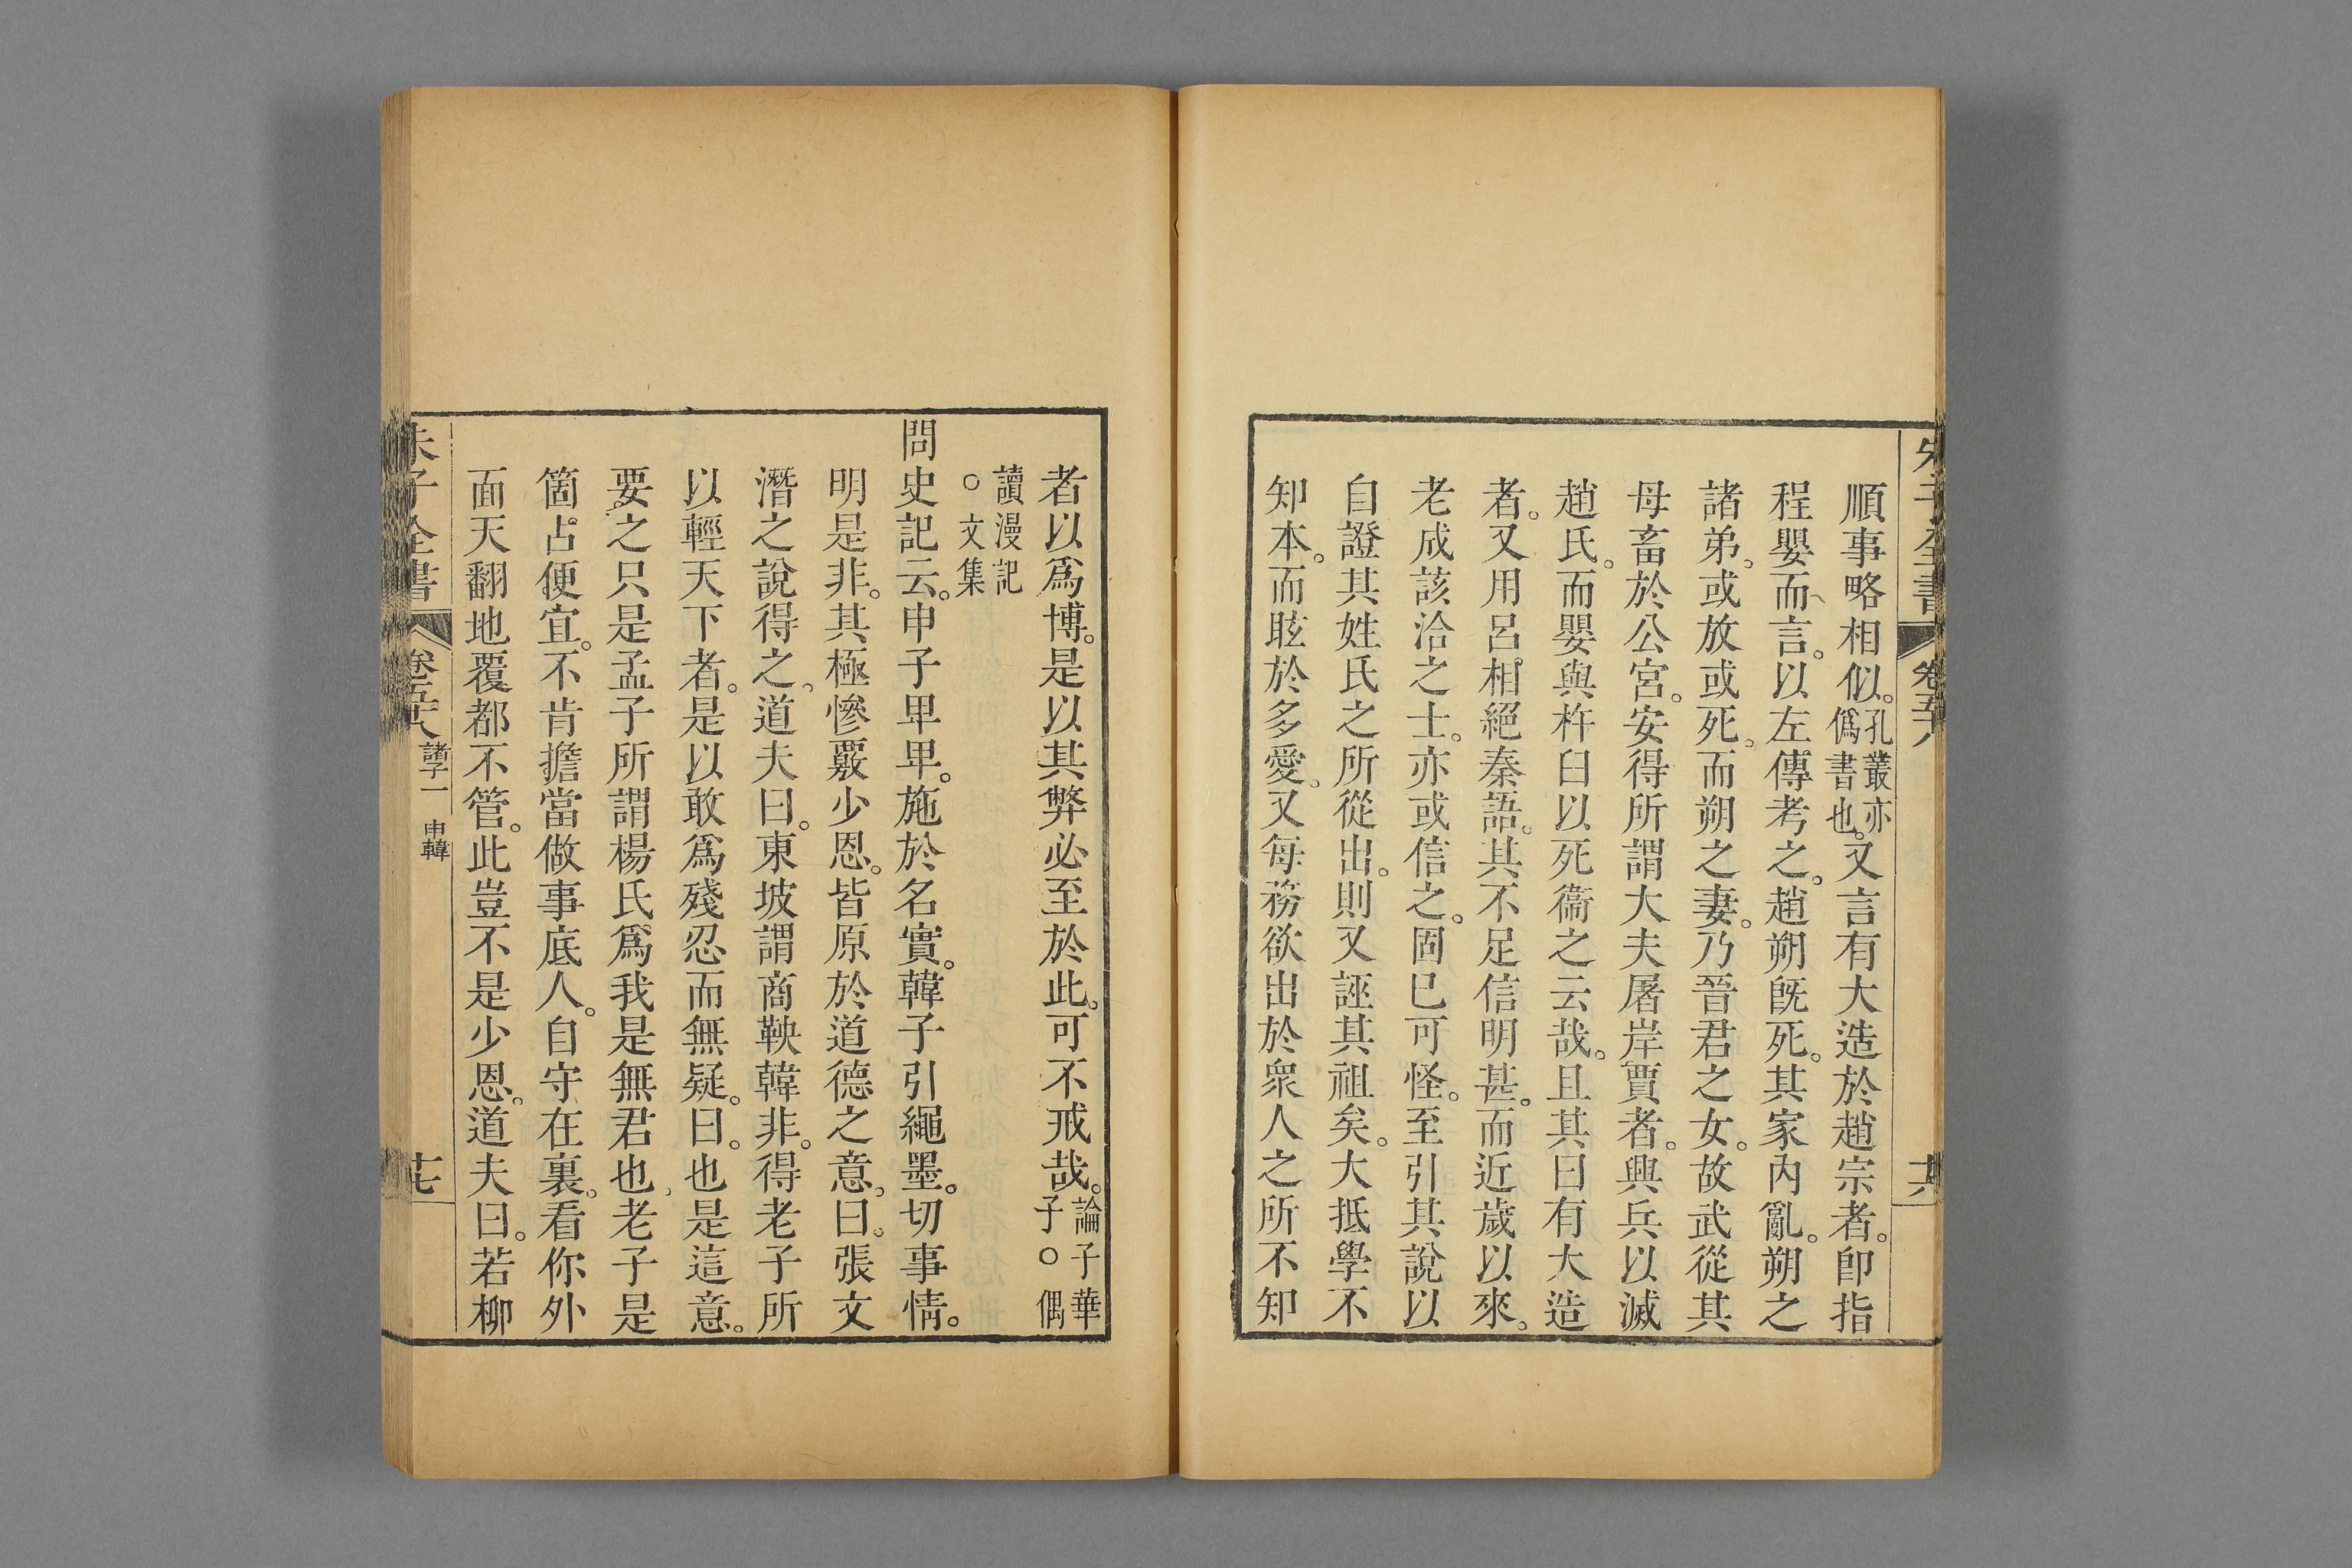 朱子全書 卷五十八 十六
順事略相似。孔叢亦僞書也。又言有大造於趙宗者。卽指
程嬰而言。以左傳考之。趙朔旣死。其家內亂。朔之
諸弟。或放或死。而朔之妻。乃晉君之女。故武從其
母畜於公宮。安得所謂大夫屠岸賈者。興兵以滅
趙氏。而嬰與杵臼以死衞之云哉。且其曰有大造
者。又用呂相絕秦語。其不足信明甚。而近歲以來。
老成該洽之士。亦或信之。固已可怪。至引其說以
自證其姓氏之所從出。則又誣其祖矣。大抵學不
知本。而眩於多愛。又每務欲出於衆人之所不知
者以爲博。是以其弊必至於此。可不戒哉。論子華子○偶
讀漫記○文集
問史記云。申子卑卑。施於名實。韓子引繩墨。切事情。
明是非。其極慘覈少恩。皆原於道德之意。曰。張文
潛之說得之。道夫曰。東坡謂商鞅韓非。得老子所
以輕天下者。是以敢爲殘忍而無疑。曰。也是這意。
要之只是孟子所謂楊氏爲我是無君也。老子是
箇占便宜。不肯擔當做事底人。自守在裏。看你外
面天翻地覆都不管。此豈不是少恩。道夫曰。若柳
朱子全書 卷五十八 諸子一 申韓 十七